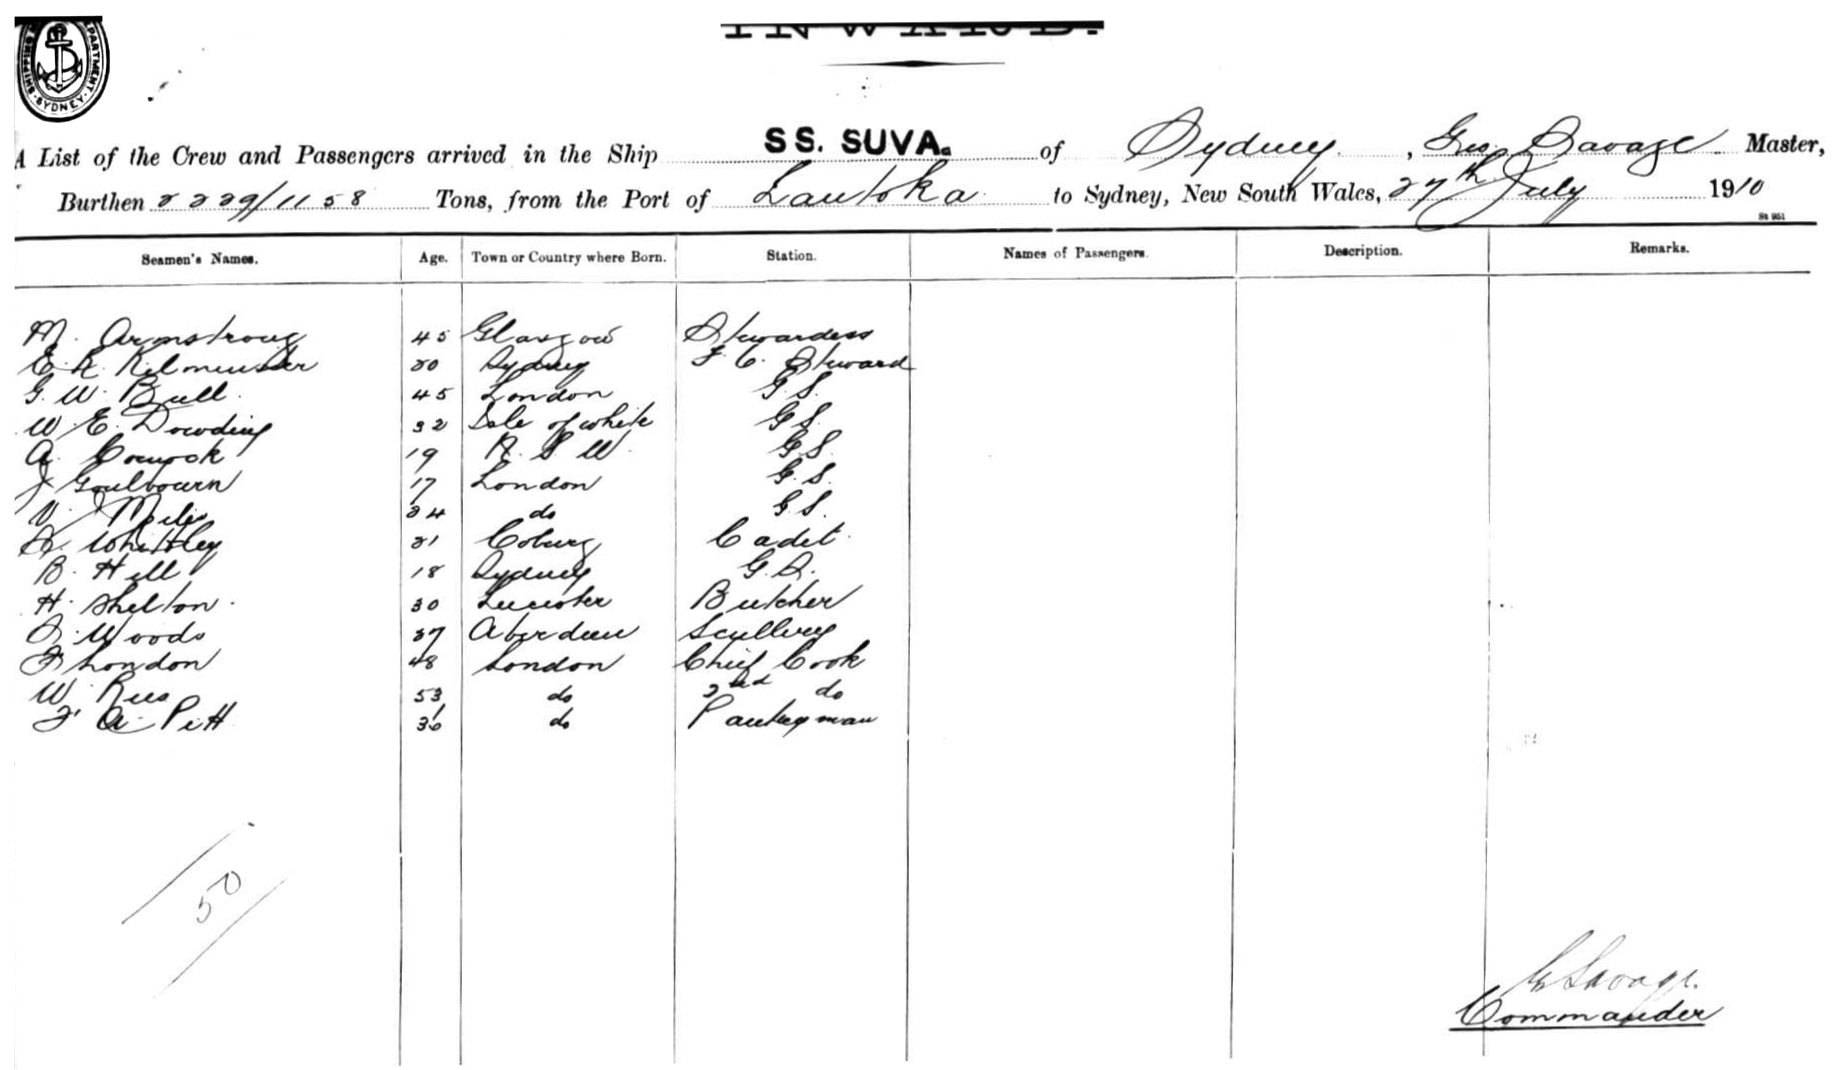 SHIPPING DEPARTMENT SYDNEY
INWARD.
A List of the Crew and Passengers arrived in the Ship SS. SUVA. of Sydney, Geo Savage Master,
Burthen 2229/1158 Tons, from the Port of Lautoka to Sydney, New South Wales, 27th July 1910
Seamen's Names. Age. Town or Country where Born. Station. Names of Passengers. Description. Remarks.
M. Armstrong 45 Glasgow Stewardess
E. R. Kilminster 20 Sydney F. C. Steward
G. W. Bull. 45 London G S.
W E. Dowding 32 Isle of white G S.
A. 19 N. S W. G S.
J Goulbourn 17 London G. S.
V. Miles 24 do G S.
Whittley 21 Coburg Cadet.
B. Hill 18 Sydney
H. Shelton. 30 Leicester Butcher
Woods 37 Aberdeen Scullery
F London 48 London Chief Cook
W. Rees 53 do 2nd do
F. A. Pitt 36 do Pantryman
50
G Savage.
Commander